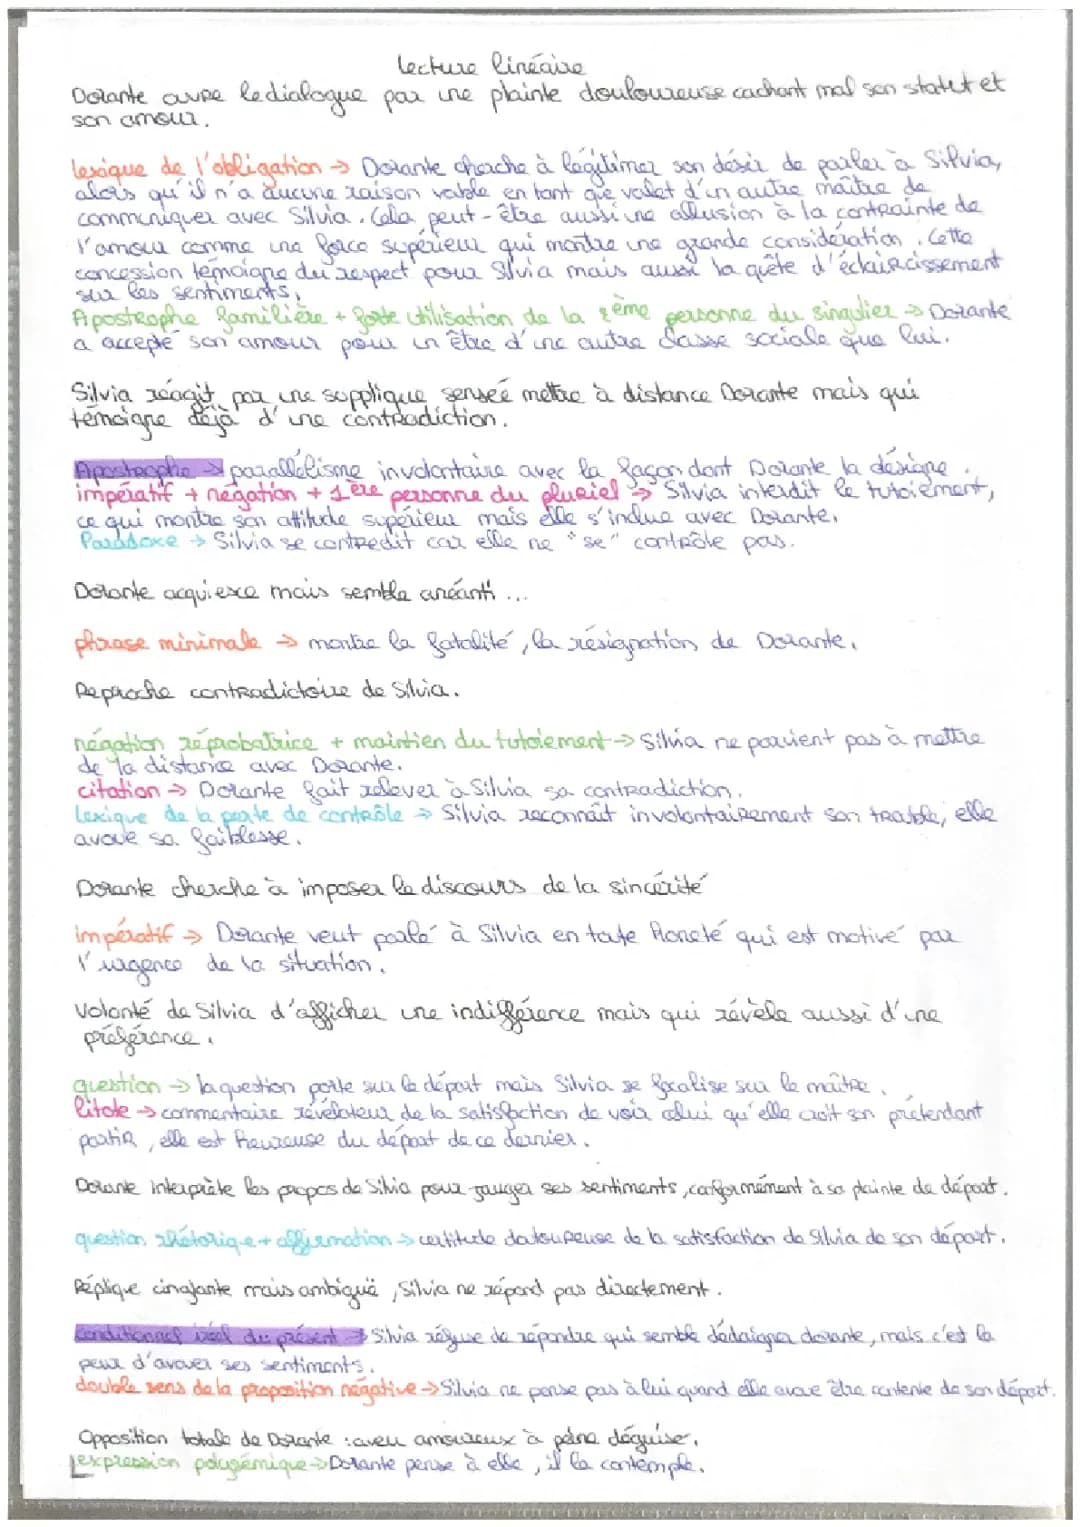 Lecture linéaire
Dorante ouvre le dialogue par une plainte douloureuse cachant mal son statut et
son amour.
lexique de l'obligation → Dorante cherche à légitimer son désir de parler à Silvia,
alors qu'il n'a aucune raison vable en tant que valet d'un autre maître de
communiquer avec Silvia. Cela peut-être aussi une allusion à la contrainte de
l'amour comme une force supérieur qui montre une grande considération. Cette
concession témoigne du respect pour Silvia mais aussi la quête d'éclaircissement
sur les sentiments.
Apostrophe familière + forte utilisation de la 2ème personne du singulier → Dorante
a accepté son amour pour un être d'une autre classe sociale que lui.
Silvia réagit par une supplique senseé mettre à distance Dorante mais qui
témoigne déjà d'une contradiction.
Apostrophe → parallélisme involontaire avec la façon dont Dorante la désigne.
impératif + négation + 1ère personne du pluriel → Silvia interdit le tutoiement,
ce qui montre son attitude supérieur mais elle s'inclue avec Dorante.
Paradoxe → Silvia se contredit car elle ne "se" contrôle pas.
Dorante acquiesce mais semble anéanti...
phrase minimale → montre la fatalité, la résignation de Dorante.
Reproche contradictoire de Silvia.
négation réprobatrice + maintien du tutoiement → Silvia ne parvient pas à mettre
de la distance avec Dorante.
citation → Dorante fait relever à Silvia sa contradiction.
Lexique de la perte de contrôle → Silvia reconnaît involontairement son trouble, elle
avoue sa faiblesse.
Dorante cherche à imposer le discours de la sincérité
impératif → Dorante veut parlé à Silvia en toute honeté qui est motivé par
l'urgence de la situation.
Volonté de Silvia d'afficher une indifférence mais qui révèle aussi d'une
préférence.
question → la question porte sur le départ mais Silvia se focalise sur le maître.
litote → commentaire révélateur de la satisfaction de voir celui qu'elle croit son prétendant
partir, elle est heureuse du départ de ce dernier.
Dorante interprète les propos de Silvia pour jauger ses sentiments, conformément à sa plainte de départ.
question rhétorique + affirmation → certitude douloureuse de la satisfaction de Silvia de son départ.
Réplique cinglante mais ambiguë, Silvia ne répond pas directement.
conditionnel iréel du présent → Silvia refuse de répondre qui semble dédaigner dorante, mais c'est la
peur d'avouer ses sentiments.
double sens de la proposition négative → Silvia ne pense pas à lui quand elle avoue être contente de son départ.
Opposition totale de Dorante : aveu amoureux à peine déguisé.
expression polysémique → Dorante pense à elle, il la contemple.